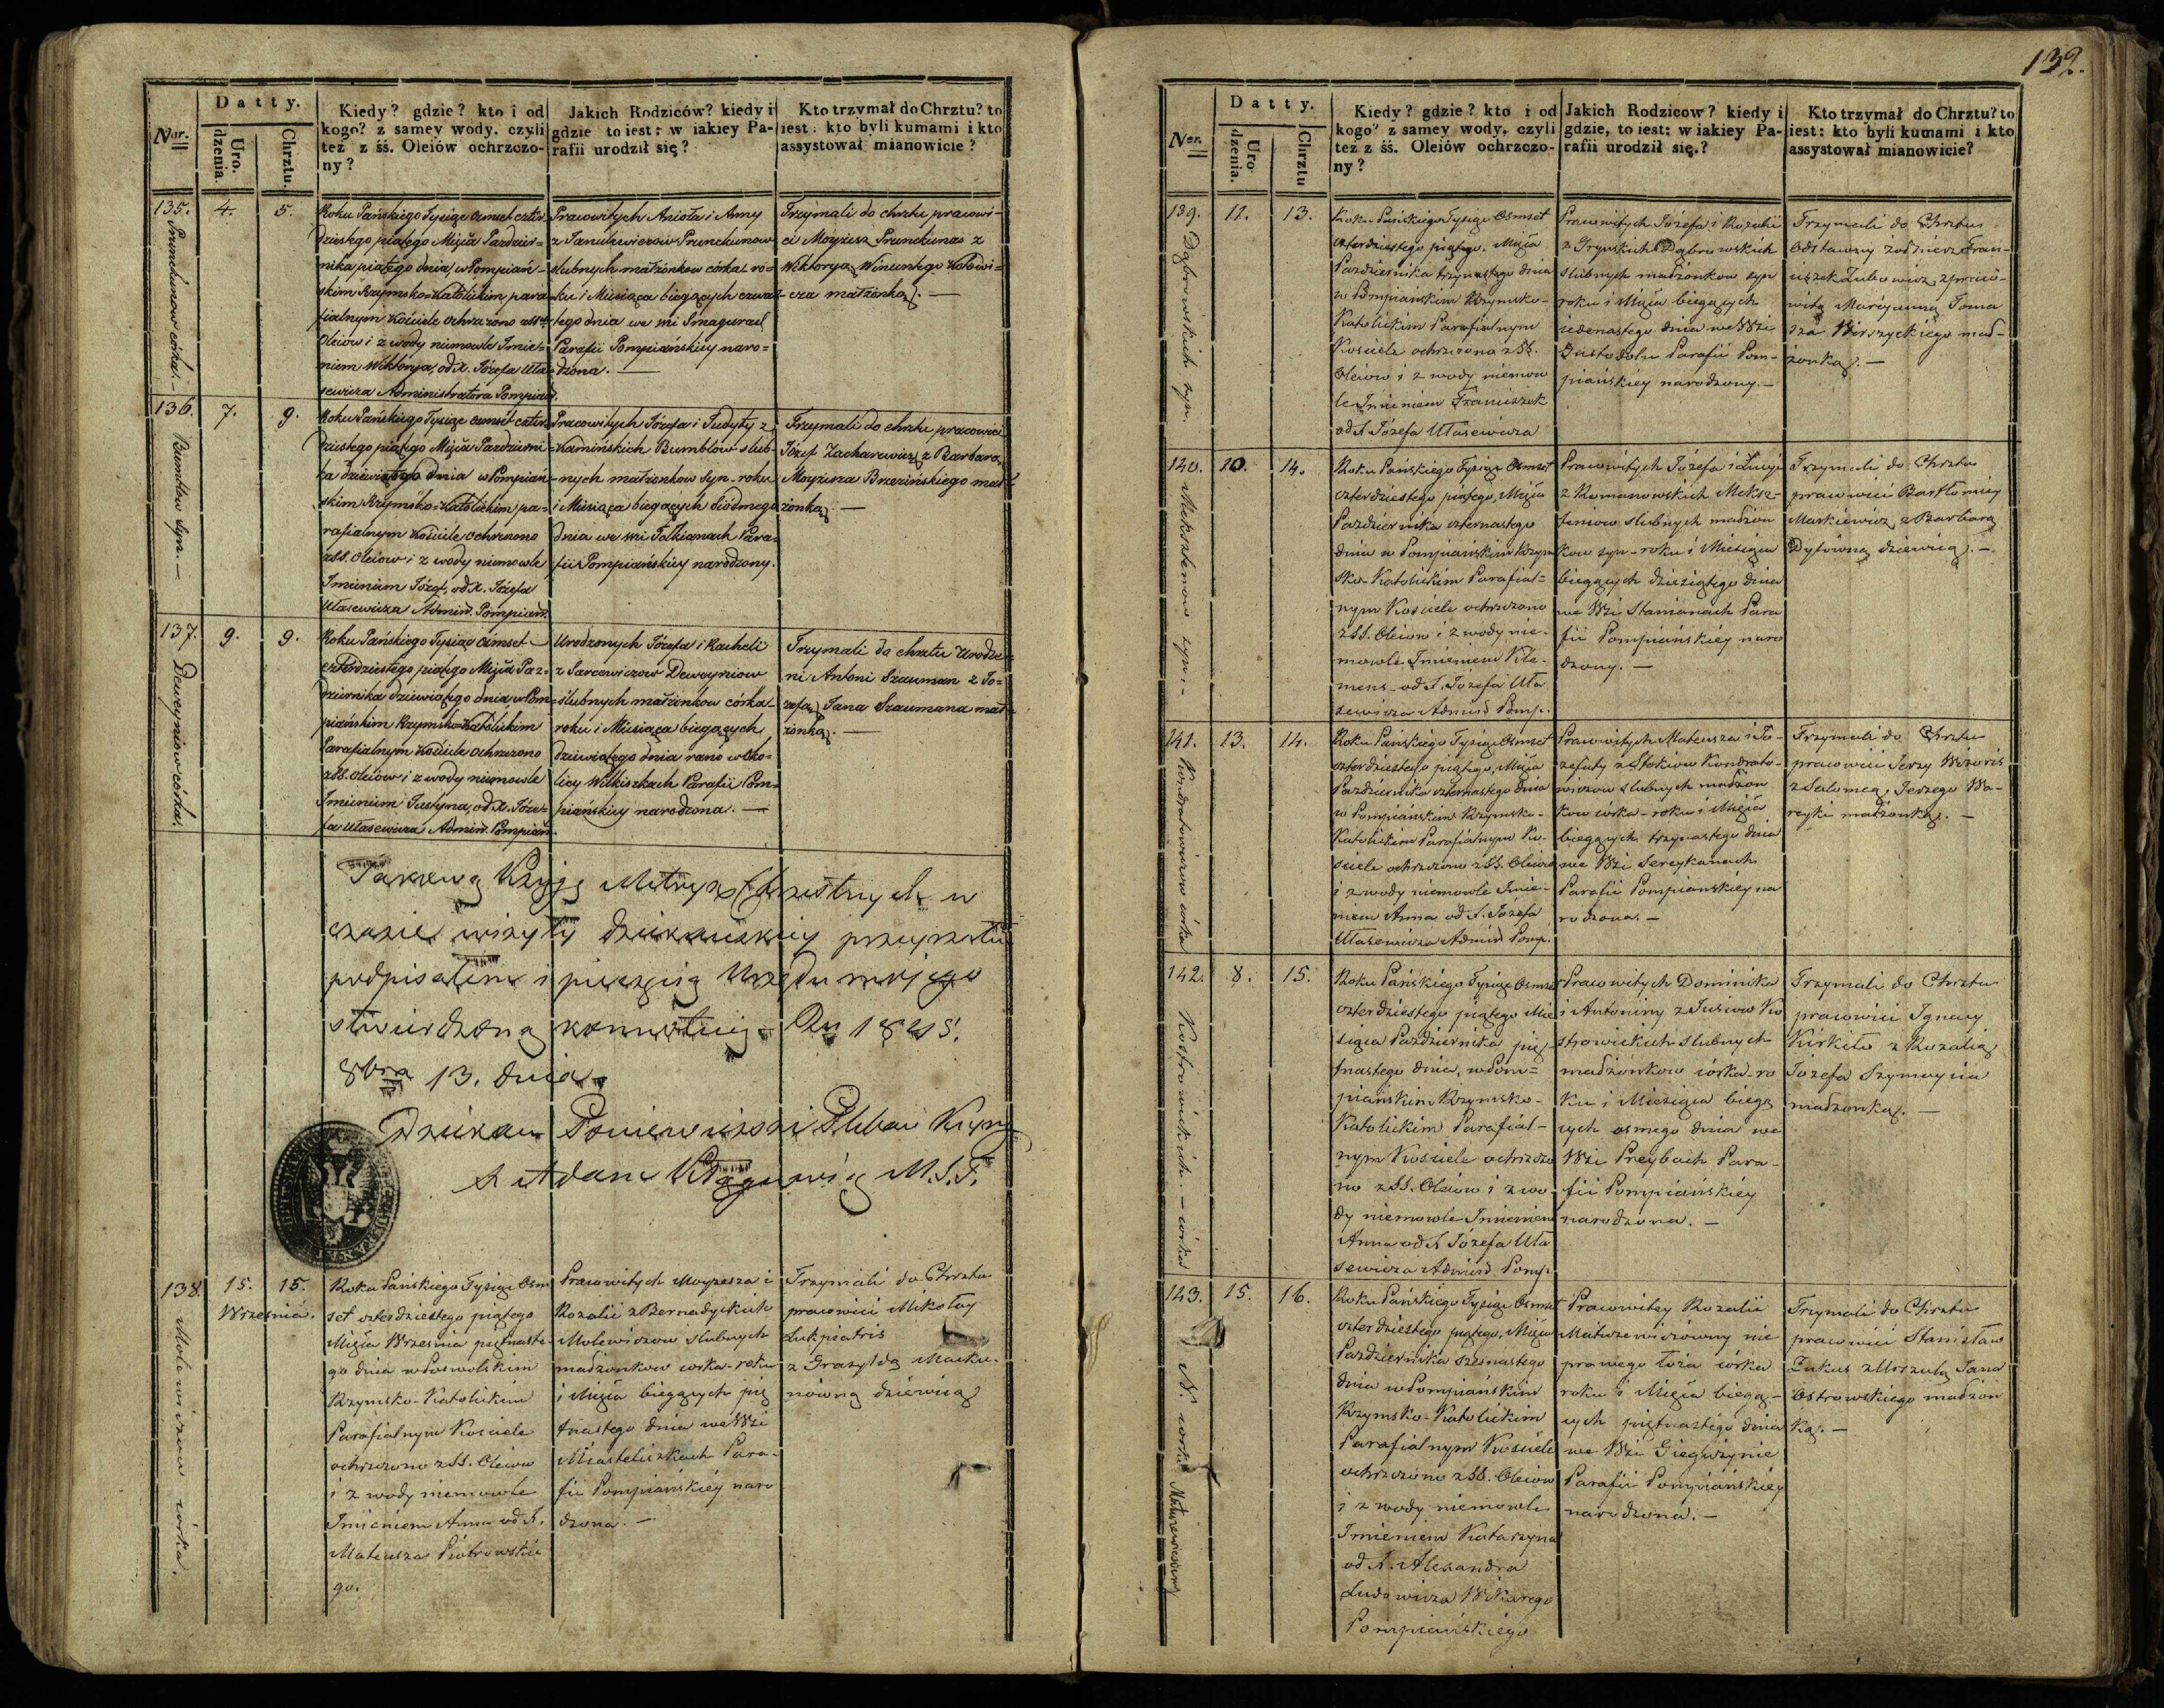 132.
Datty.
Ner.
Uro-
dzenia.
Chrztu.
Kiedy? gdzie? kto i od
kogo? z samey wody, czyli
też z śś. Oleiów ochrzczo-
ny?
Jakich Rodziców? kiedy i
gdzie to iest: w iakiey Pa-
rafii urodził się?
Kto trzymał do Chrztu? to
iest: kto byli kumami i kto
assystował mianowicie?
135.
Prunckunow córka. —
4.
5.
Roku Pańskiego Tysiąc osmset czter-
dziestego piątego Msija Pazdzier=
nika piątego dnia, w Pompiań-
skim Rzymsko=Katolickim para-
fialnym Kościele ochrzczono z SS.
Oleiów i z wody niemowle Imie=
niem Wiktorya, od X. Józefa Uła-
sewicza Administratora Pompiań.
Pracowitych Anioła i Anny
z Janulewiczow Prunckunow
slubnych małżonkow córka ro=
ku i Miesiąca biegących czwar-
tego dnia we wsi
Parafii Pompiańskiey naro=
dzona. —
Trzymali do chrztu pracowi-
ci Moyzesz Prunckunas z
Wiktoryą Wincentego
cza małżonką. —
136.
Bumblow Syn. —
7.
9.
Roku Pańskiego Tysiąc osmset czter-
dziestego piątego Msija Pazdzierni-
ka dziewiątego dnia w Pompiań-
skim Rzymsko=Katolickim pa=
rafialnym Kościele ochrzczono
z SS. Oleiow i z wody niemowle
Imieniem Józef, od X. Józefa
Ułasewicza Admin. Pompiań.
Pracowitych Józefa i Judyty z
Kamińskich Bumblow slub-
nych małżonkow Syn. roku
i Miesiąca biegących siodmego
dnia we wsi Tołkianach Para-
fii Pompiańskiey narodzony.
Trzymali do chrztu pracowici
Józef Zacharewicz z Barbarą
Moyzesza Brzezińskiego mał-
żonką. —
137.
Deweyniow córka.
9.
9.
Roku Pańskiego Tysiąc osmset
czterdziestego piątego Msija Paz-
dziernika dziewiątego dnia, w Pom-
piańskim Rzymsko=Katolickim
Parafialnym Kościele ochrzczono
z SS. oleiow i z wody niemowle
Imieniem Justyna, od X. Józe=
fa Ułasewicza Admin. Pompiań.
Urodzonych Józefa i Racheli
z Deweyniow
ślubnych małżonkow córka
roku i Miesiąca biegących
dziewiątego dnia rano w Oko-
licy Wilkiszkach Parafii Pom-
piańskiey narodzona. —
Trzymali do chrztu Urodze-
ni Antoni Szauman z Jo=
zefą Jana Szaumana mał-
żonką. —
Takową Xięgę Metryk Chrzestnych w
czasie wizyty dziekańskiey przeyrzałem
podpisałem i pieczęcią Urzędu mojego
stwierdzoną Ru 1845.
8bra 13. dnia.
Dziekan Poniewiezski Pleban
X Adam M.S.T.
138.
Molewiczow córka.
15.
Wrzesnia.
15.
Roku Pańskiego Tysiąc Osm
set czterdziestego piątego
Msija Wrzesnia piętnaste-
go dnia w Poswolskim
Rzymsko-Katolickim
Parafialnym Kosciele
ochrzczono z SS. Oleiow
i z wody niemowle
Imieniem Anna od X.
Mateusza Piotrowskie
go.
Pracowitych Moyzesza i
Rozalii z Bernadyckich
Molewiczow slubnych
małżonkow corka- roku
i Msija biegących pię
tnastego dnia we Wsi
Miasteliszkach Para-
fii Pompiańskiey naro
dzona. —
Trzymali do Chrztu
pracowici Mikołay
Łukpiatris
z Grazyldą Macku-
nówną dziewicą
Datty.
Ner.
Uro-
dzenia.
Chrztu
Kiedy? gdzie? kto i od
kogo? z samey wody, czyli
też z śś. Oleiów ochrzczo-
ny?
Jakich Rodzicow? kiedy i
gdzie, to iest: w iakiey Pa-
rafii urodził się.?
Kto trzymał do Chrztu? to
iest: kto byli kumami i kto
assystował mianowicie?
139.
Dąbrowskich syn.
11.
13.
Roku Pańskiego Tysiąc Osmset
czterdziestego piątego, Msija
Pazdziernika trzynastego dnia
w Pompiańskim Rzymsko-
Katolickim Parafialnym
Kosciele ochrzczono z SS.
Oleiow i z wody niemow
le Imieniem Franciszek
od X Józefa Ułasewicza
Pracowitych Józefa i Rozalii
z Dąbrowskich
slubnych małżonkow syn
roku i Msija biegących
iedenastego dnia we Wsi
Parafii Pom-
piańskiey narodzony. —
Trzymali do Chrztu
Odstawny żołnierz Fran-
ciszek z praco-
witą Maryanną Toma
sza Wirszyckiego mał-
żonką. —
140.
syn. —
10.
14.
Roku Pańskiego Tysiąc Osmset
czterdziestego piątego, Msija
Pazdziernika czternastego
dnia w Pompiańskim Rzym
sko-Katolickim Parafial=
nym Kosciele ochrzczono
z SS. Oleiow i z wody nie-
mowle Imieniem Kle-
mens - od X. Jozefa Uła
sewicza Admin Pomp.
Pracowitych Józefa i Łucyi
z Romanowskich Meksz-
teniow slubnych małżon
kow syn - roku i Miesiąca
biegących dziesiątego dnia
we Wsi Stanionach Para
fii Pompiańskiey naro
dzony. —
Trzymali do Chrztu
pracowici Bartłomiey
Markiewicz z Barbarą
dziewicą. —
141.
Kondratowiczow córka
13.
14.
Roku Pańskiego Tysiąc Osmset
czterdziestego piątego, Msija
Pazdziernika czternastego dnia
w Pompiańskim Rzymsko-
Katolickim Parafialnym Ko-
sciele ochrzczono z SS. Oleiow
i z wody niemowle Imie-
niem Anna od X. Józefa
Ułasewicza Admin Pomp.
Pracowitych Mateusza i Jo-
zefaty Kondrato-
wiczow slubnych małżon
kow córka - roku i Msija
biegących trzynastego dnia
we Wsi Sereykanach
Parafii Pompianskiey na
rodzona. —
Trzymali do Chrztu
pracowici Jerzy
z Salomeą Jerzego Wa-
reyki małżonką. —
142.
Kostrowickich — córka
8.
15.
Roku Pańskiego Tysiąc Osmset
czterdziestego piątego Mie
siąca Pazdziernika pię-
tnastego dnia, w Pom=
piańskim Rzymsko-
Katolickim Parafial-
nym Kosciele ochrzczo
no z SS. Oleiow i z wo-
dy niemowle Imieniem
Anna od X Józefa Uła
sewicza Admin Pomp.
Pracowitych Dominika
i Antoniny z Jusiow Ko
strowickich slubnych
małżonkow córka - ro
ku i Miesiąca biegą
cych osmego dnia we
Wsi Preybach Para-
fii Pompiańskiey
narodzona. —
Trzymali do Chrztu
pracowici Ignacy
Kirkiło z Rozalią
Józefa Szymaycia
małżonką. —
143.
córka Matuzewiczówny
15.
16.
Roku Pańskiego Tysiąc Osmset
czterdziestego piątego, Msija
Pazdziernika szesnastego
dnia w Pompiańskim
Rzymsko-Katolickim
Parafialnym Kosciele
ochrzczono z SS. Oleiow
i z wody niemowle
Imieniem Katarzyna
od X. Alexandra
Ludowicza Wikarego
Pompiańskiego
Pracowitey Rozalii
Matuzewiczówny nie
prawego łoża córka
roku i Msija biegą-
cych piętnastego dnia
we Wsi Giegużynie
Parafii Pompiańskiey
narodzona. —
Trzymali do Chrztu
pracowici Stanisław
Żukus z Urszulą Jana
Ostrowskiego małżon
ką. —